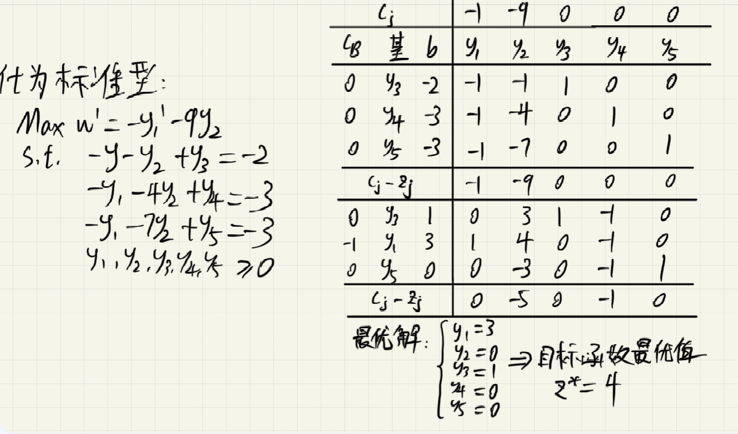 化为标准型:
Max w' = -y₁' - 9y₂
s.t. -y - y₂ + y₃ = -2
-y₁ - 4y₂ + y₄ = -3
-y₁ - 7y₂ + y₅ = -3
y₁, y₂, y₃, y₄, y₅ ≥ 0
Cj -1 -9 0 0 0
CB 基 b y₁ y₂ y₃ y₄ y₅
0 y₃ -2 -1 -1 1 0 0
0 y₄ -3 -1 -4 0 1 0
0 y₅ -3 -1 -7 0 0 1
Cj - Zj -1 -9 0 0 0
0 y₃ 1 0 3 1 -1 0
-1 y₁ 3 1 4 0 -1 0
0 y₅ 0 0 -3 0 -1 1
Cj - Zj 0 -5 0 -1 0
最优解: { y₁ = 3
y₂ = 0
y₃ = 1
y₄ = 0
y₅ = 0
⇒ 目标函数最优值
z* = 4